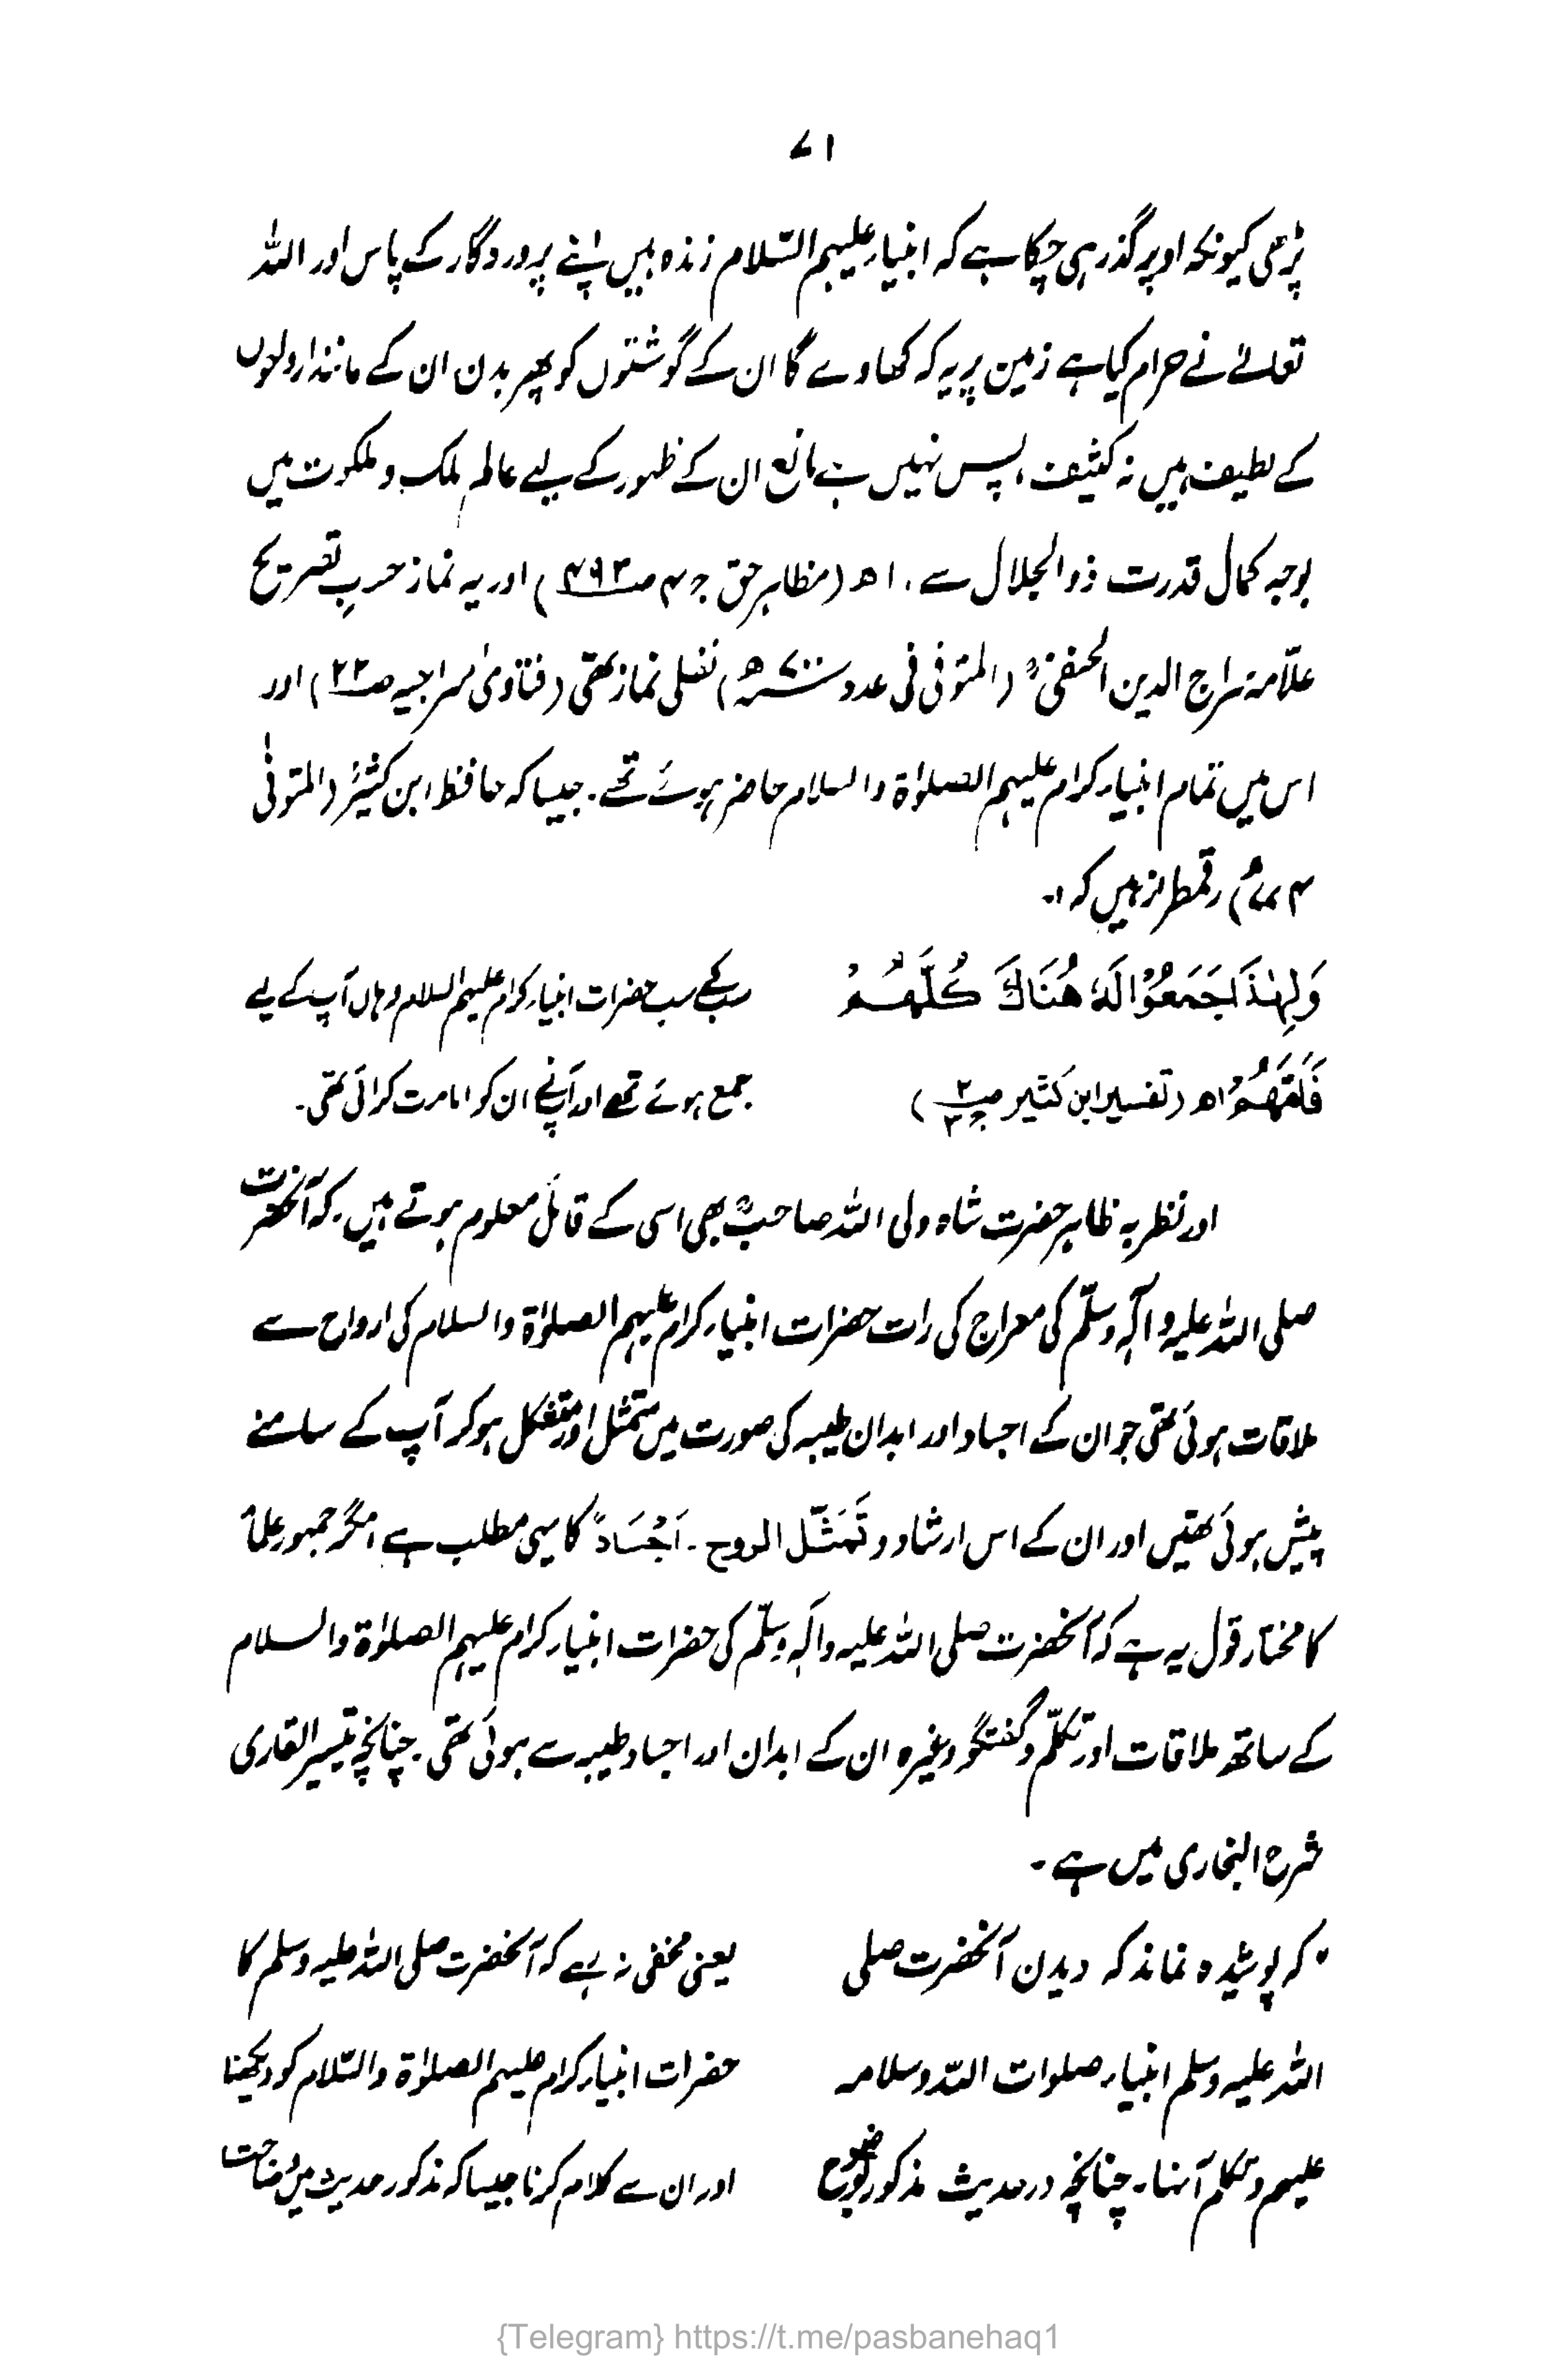 ۷۱
پڑھی کیونکہ اوپر گذر ہی چکا ہے کہ انبیاء علیہم السّلام زندہ ہیں اپنے پروردگار کے پاس اور اللہ
تعالےٰ نے حرام کیا ہے زمین پر یہ کہ کھاوے گا ان کے گوشتوں کو پھر بدن ان کے مانند ارواحوں
کے لطیف ہیں نہ کثیف، پس نہیں ہے مانع ان کے ظہور کے لیے عالم ملک و ملکوت میں
بوجہ کمال قدرت ذوالجلال سے، اھ (مظاہر حق ج۴ ص۴۹۳) اور یہ نماز حسبِ تصریح
علّامہ سراج الدین الحنفیؒ (المتوفی فی حدود ۷۰۰ھ) نفلی نماز تھی (فتاویٰ سراجیہ ص۲۲) اور
اس میں تمام انبیاء کرام علیہم الصلوٰۃ والسلام حاضر ہوئے تھے۔ جیسا کہ حافظ ابن کثیرؒ (المتوفّٰی
۷۷۴ھ) رقمطراز ہیں کہ :۔
وَلِهٰذَا جَمَعُوْا لَهٗ هُنَاكَ كُلُّهُمْ
فَاَمَّهُمْ اھ (تفسیر ابن کثیر ص۲ ج۳)
سب کے سب حضرات انبیاء کرام علیہم السلام وہاں آپ کے لیے
جمع ہوئے تھے اور آپؐ نے ان کو امامت کرائی تھی۔
اور نظر بہ ظاہر حضرت شاہ ولی اللہ صاحبؒ بھی اسی کے قائل معلوم ہوتے ہیں۔ کہ آنحضرت
صلی اللہ علیہ وآلہٖ وسلّم کی معراج کی رات حضرات انبیاء کرام علیہم الصلوٰۃ والسلام کی ارواح سے
ملاقات ہوئی تھی جو ان کے اجساد اور ابدان طیبہ کی صورت میں متمثل اور متشکل ہو کر آپ کے سامنے
پیش ہوئی تھیں اور ان کے اس ارشاد و تَمَثَّل الروح۔ اَجْسَادً کا یہی مطلب ہے مگر جمہور علماءؒ
کا مختار قول یہ ہے کہ آنحضرت صلی اللہ علیہ وآلہٖ وسلّم کی حضرات انبیاء کرام علیہم الصلوٰۃ والسلام
کے ساتھ ملاقات اور تکلّم و گفتگو وغیرہ ان کے ابدان اور اجساد طیبہ سے ہوئی تھی۔ چنانچہ تیسیر القاری
شرح البخاری میں ہے۔
"کہ پوشیدہ نماند کہ دیدن آنحضرت صلی
اللہ علیہ وسلم انبیاء صلوات اللہ وسلامہ
علیہم و تکلم آنہا۔ چنانچہ در حدیث مذکور بوضوح
یعنی مخفی نہ رہے کہ آنحضرت صلی اللہ علیہ وسلم کا
حضرات انبیاء کرام علیہم الصلوٰۃ والسّلام کو دیکھنا
اور ان سے کلام کرنا جیسا کہ مذکور حدیث میں وضاحت
{Telegram} https://t.me/pasbanehaq1